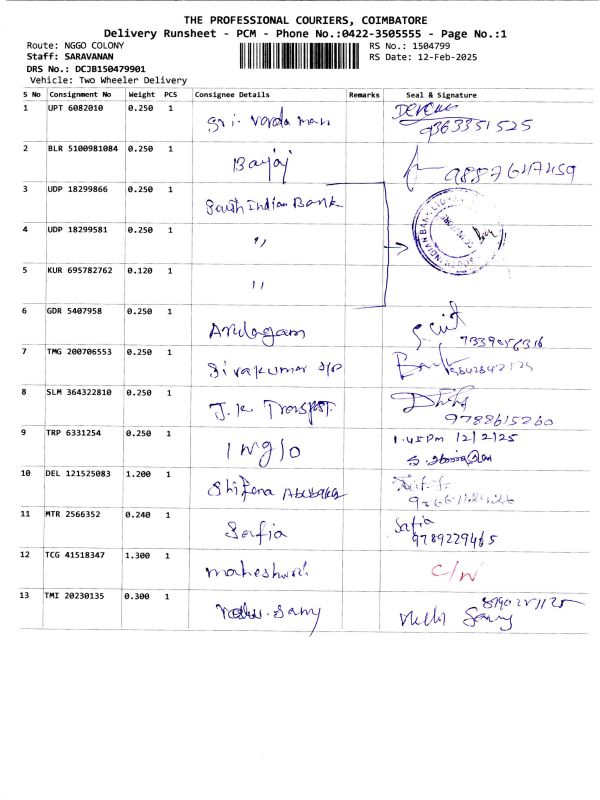 THE PROFESSIONAL COURIERS, COIMBATORE
Delivery Runsheet - PCM - Phone No.:0422-3505555 - Page No.:1
Route: NGGO COLONY
RS No.: 1504799
Staff: SARAVANAN
RS Date: 12-Feb-2025
DRS No.: DCJB150479901
Vehicle: Two Wheeler Delivery
S No Consignment No Weight PCS Consignee Details Remarks Seal & Signature
1 UPT 6082010 0.250 1 Sri. Varda man
9363351525
2 BLR 5100981084 0.250 1 Bajaj
3 UDP 18299866 0.250 1 South Indian Bank
4 UDP 18299581 0.250 1 ''
5 KUR 695782762 0.120 1 ''
6 GDR 5407958 0.250 1 Arulagam
7339056316
7 TMG 200706553 0.250 1 Sivakumar
8 SLM 364322810 0.250 1 J.K Transport.
9788615260
9 TRP 6331254 0.250 1 1.45Pm 12/2/25
10 DEL 121525083 1.200 1 Shifana
11 MTR 2566352 0.240 1 Safia Safia
9789229465
12 TCG 41518347 1.300 1 maheshwari C/N
13 TMI 20230135 0.300 1 Samy
Samy